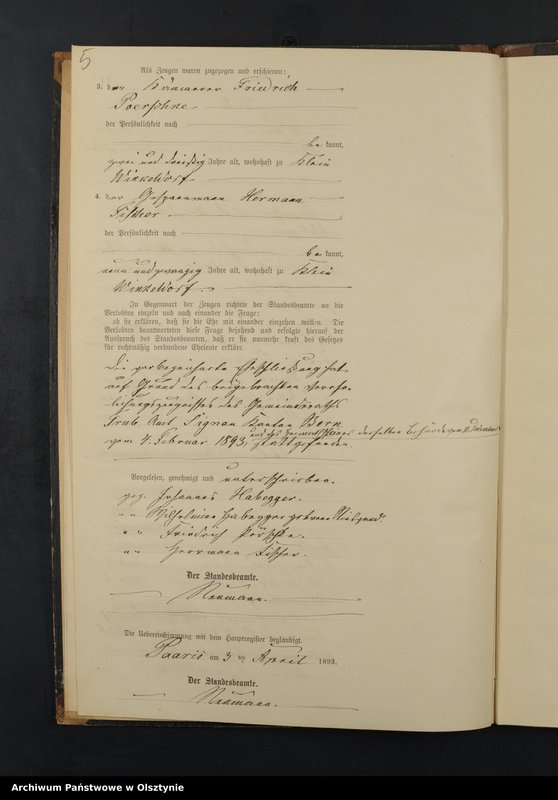 5
Als Zeugen waren zugezogen und erschienen:
3. der Kämmerer Friedrich
Poerschke
der Persönlichkeit nach
be kannt,
zwei und dreißig Jahre alt, wohnhaft zu Klein
Winkeldorf
4. der Gespannmann Hermann
Fischer
der Persönlichkeit nach
be kannt,
neun und zwanzig Jahre alt, wohnhaft zu Klein
Winkeldorf.
In Gegenwart der Zeugen richtete der Standesbeamte an die
Verlobten einzeln und nach einander die Frage:
ob sie erklären, daß sie die Ehe mit einander eingehen wollen. Die
Verlobten beantworteten diese Frage bejahend und erfolgte hierauf der
Ausspruch des Standesbeamten, daß er sie nunmehr kraft des Gesetzes
für rechtmäßig verbundene Eheleute erkläre.
Die vorbezeichnete Eheschließung hat
auf Grund des beigebrachten
des Gemeinderaths
Trub, Amt Signau Kanton Bern
vom 4. Februar 1893, und des Heimathscheines derselben Behörde vom 11. Dezember
stattgefunden.
Vorgelesen, genehmigt und unterschrieben.
gez. Johannes Habegger.
" " Wilhelmine Habegger geborene
" " Friedrich Pörschke.
" " Herrmann Fischer.
Der Standesbeamte.
Neumann.
Die Uebereinstimmung mit dem Hauptregister beglaubigt.
Paaris am 3 ten April 1893.
Der Standesbeamte.
Neumann.
Archiwum Państwowe w Olsztynie